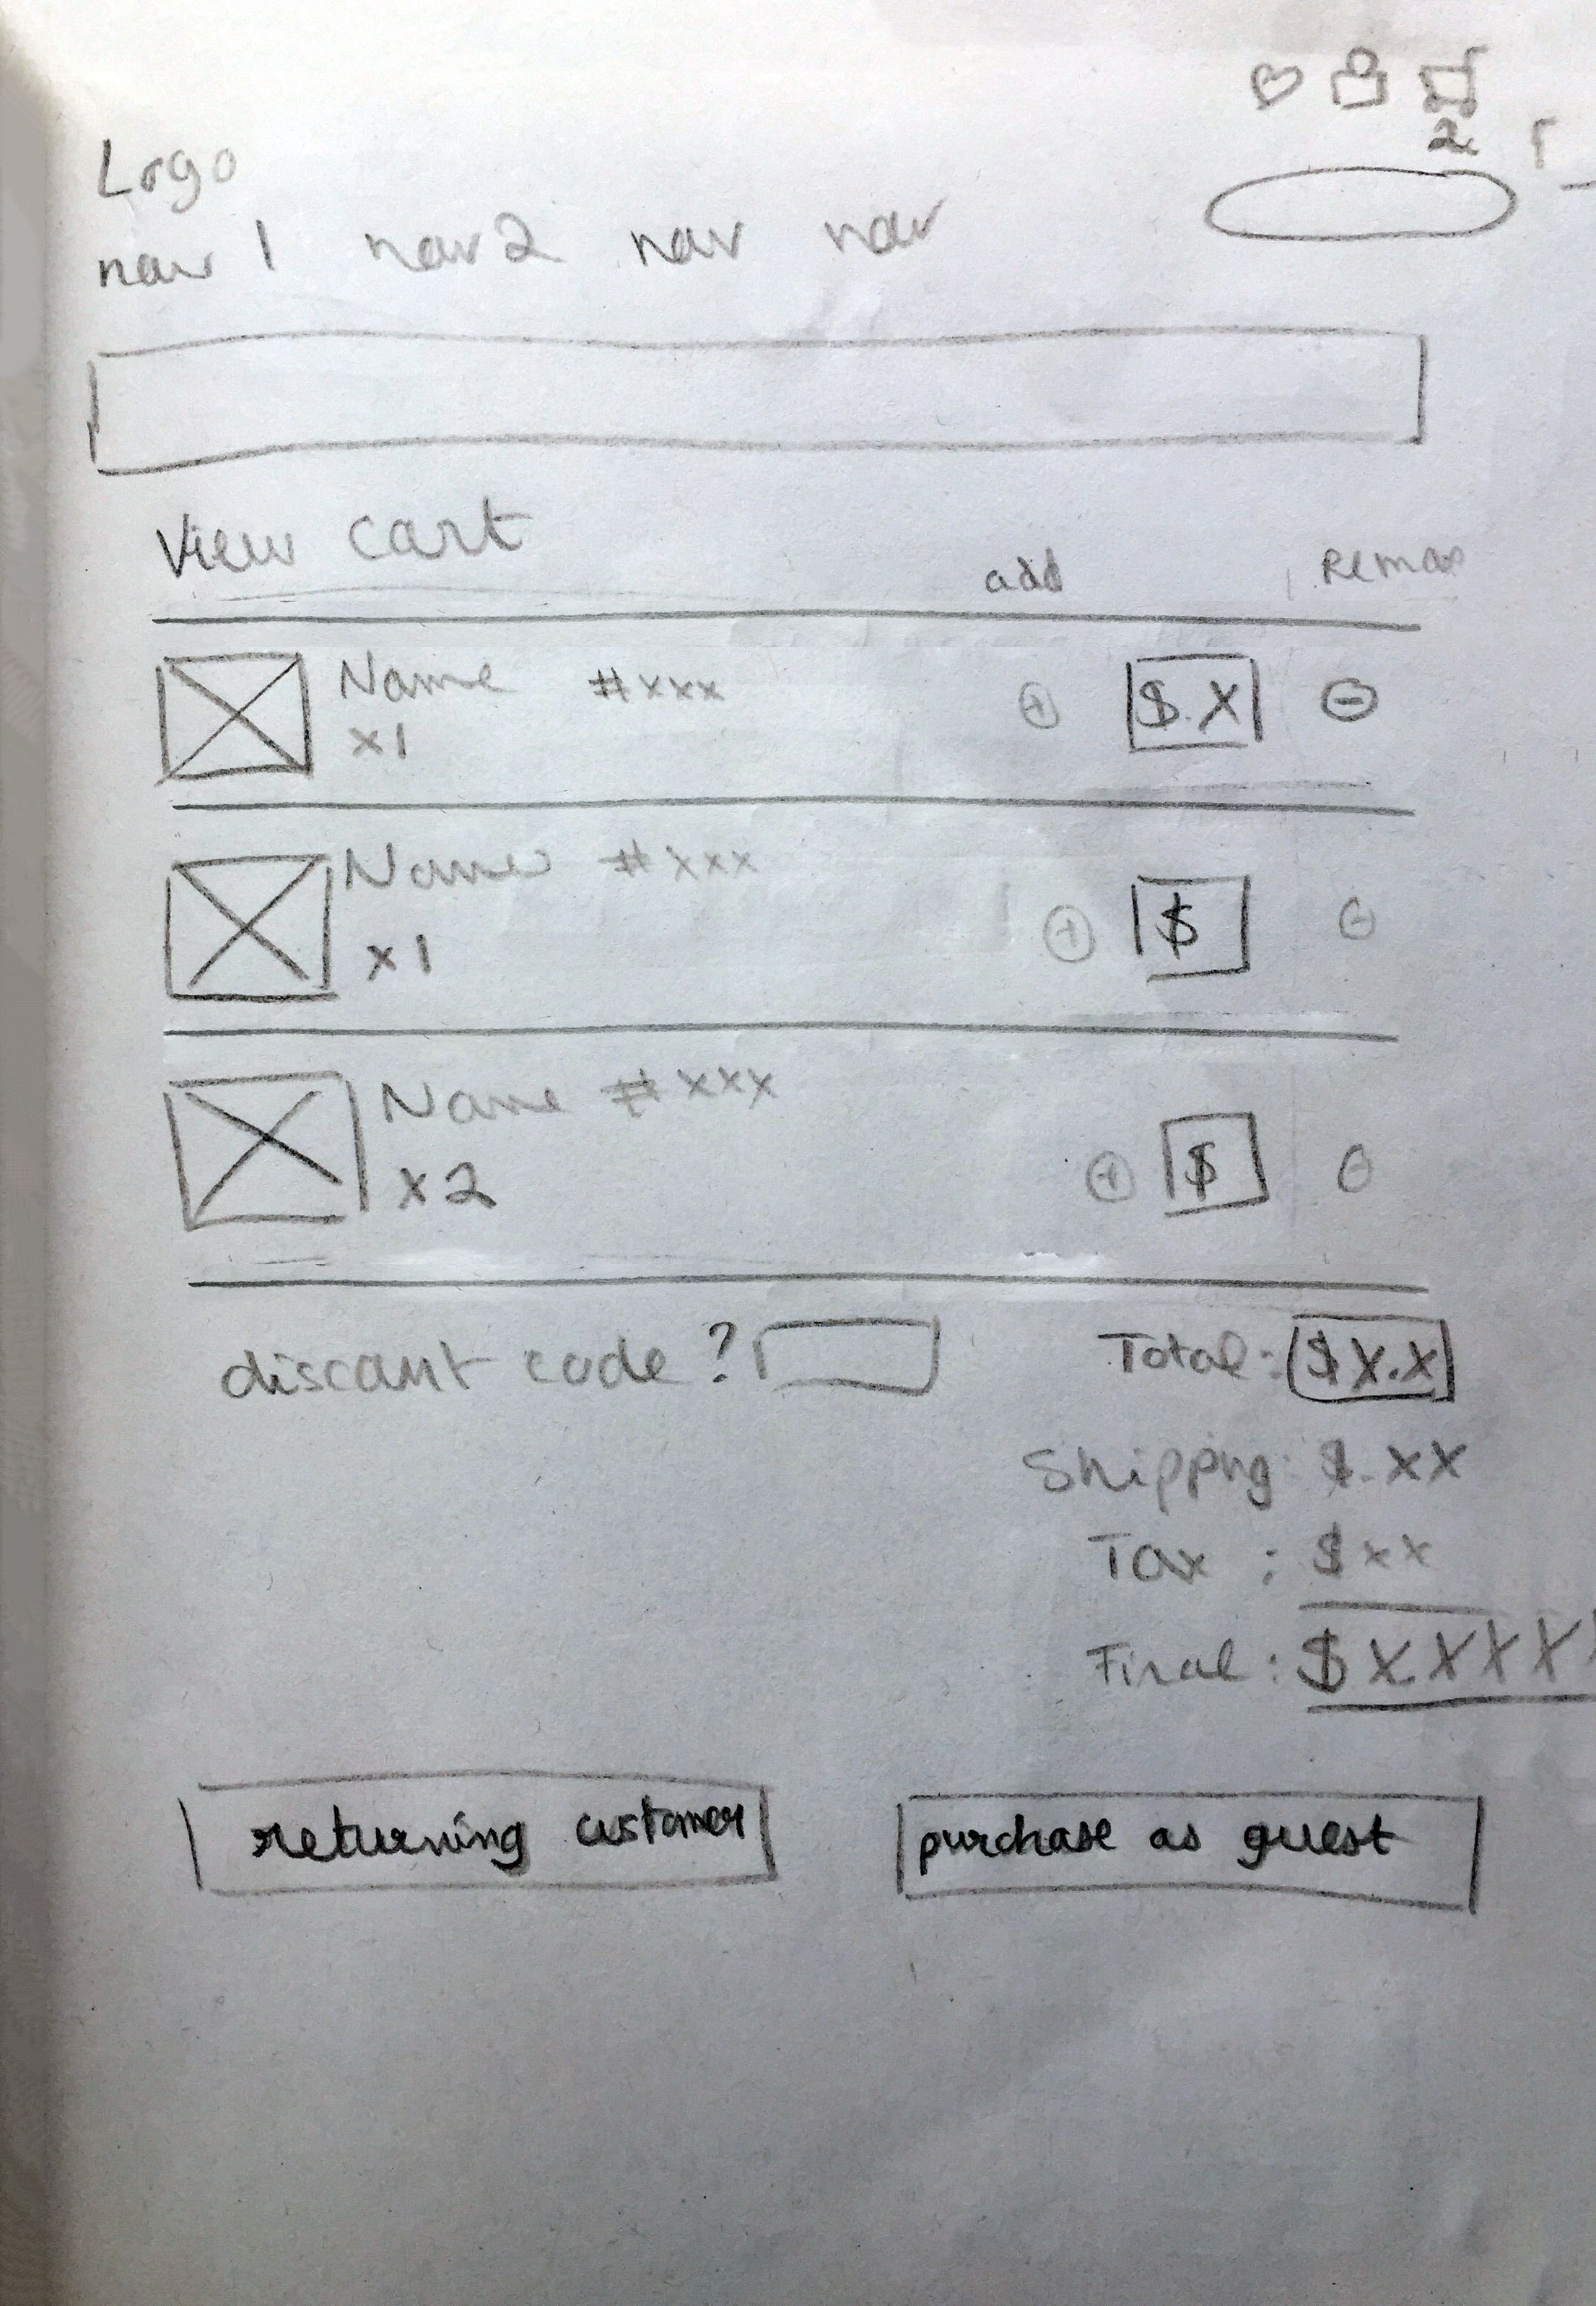 2
Logo
nav 1 nav 2 nav nav
View cart
add
Name #xxx + $.X -
x1
Name #xxx + $ -
x1
Name #xxx + $
x2
discount code? Total: $X.X
Shipping: $.XX
Tax : $xx
Final: $XXXXX
returning customer purchase as guest